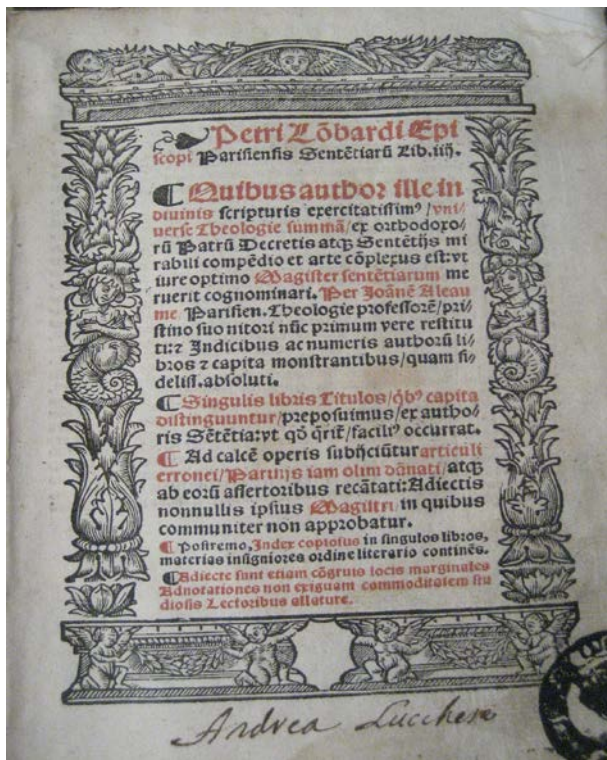 Petri Lõbardi Epi
scopi Parisiensis Sentẽtiarũ Lib. iiij.
¶ Quibus author ille in
diuinis scripturis exercitatissimꝰ / vni⸗
uerse Theologie summã / ex orthodoxo⸗
rũ Patrũ Decretis atqꝫ Sentẽtijs mi
rabili compẽdio et arte cõplexus est: vt
iure optimo Magister sentẽtiarum me
ruerit cognominari. Per Joãnẽ Aleau
me Parisien. Theologie professorẽ / pri⸗
stino suo nitori nũc primum vere restitu
ti: ⁊ Indicibus ac numeris authorũ li⸗
bros ⁊ capita monstrantibus / quam fi⸗
deliss. absoluti.
¶ Singulis libris Titulos / q̃bꝰ capita
distinguuntur / preposuimus / ex autho⸗
ris Sẽtẽtia: vt qđ q̃rit̃ / faciliꝰ occurrat.
¶ Ad calcẽ operis subijciũtur articuli
erronei / Parrhisijs iam olim dãnati / atqꝫ
ab eorũ assertoribus recãtati: Adiectis
nonnullis ipsius Magistri / in quibus
communiter non approbatur.
¶ Postremo, Index copiosus in singulos libros,
materias insigniores ordine literario continẽs.
¶ Adiecte sunt etiam cõgruis locis marginales
Adnotationes non exiguam commoditatem stu
diosis Lectoribus allature.
Andrea Lucchese